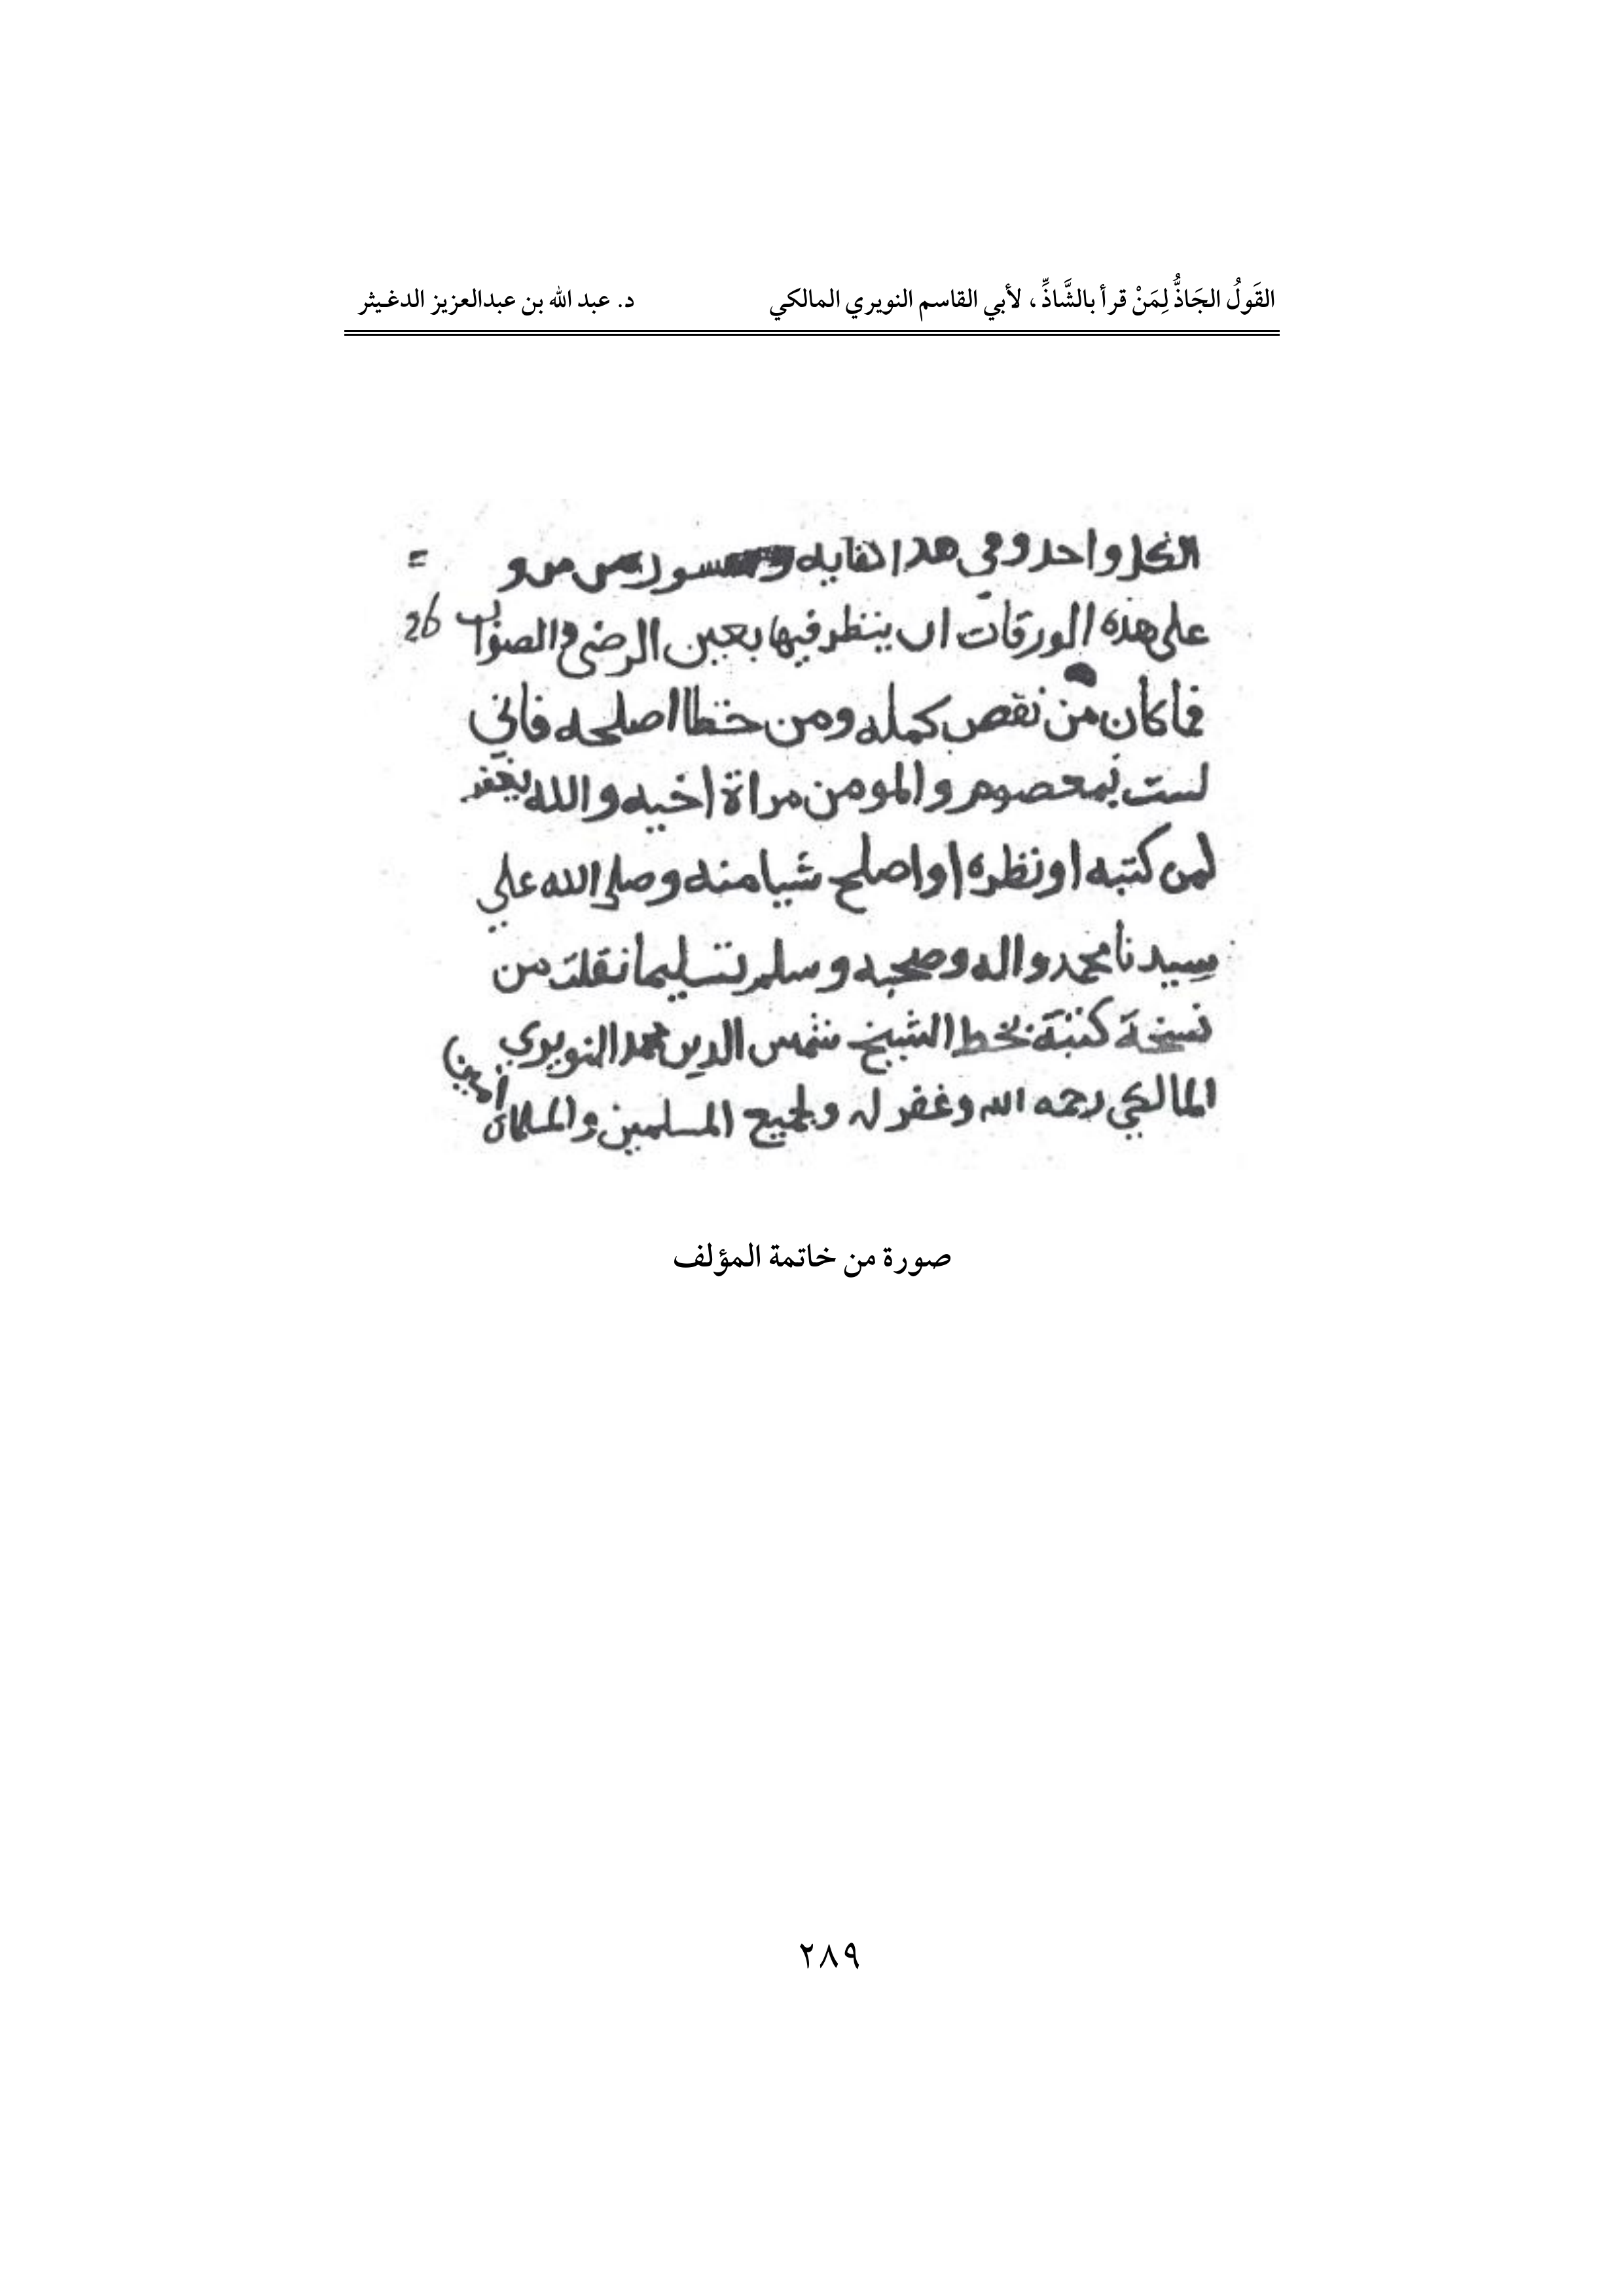 القَولُ الجَاذُّ لِمَنْ قرأ بالشَّاذِّ، لأبي القاسم النويري المالكي د. عبد الله بن عبدالعزيز الدغيثر
الكل واحد وفي هدا
على هذه الورقات ان ينظر فيها بعين الرضى والصواب 26
فما كان من نقص كمله ومن خطا اصلحه فاني
لست بمعصوم والمومن مراة اخيه والله يغفر
لمن كتبه او نظره او اصلح شيا منه وصلى الله علي
سيدنا محمد واله وصحبه وسلم تسليما نقلت من
نسخة كتبت بخط الشيخ شمس الدين محمد النويري
المالكي رحمه الله وغفر له ولجميع المسلمين والمسلمات امين
صورة من خاتمة المؤلف
٢٨٩